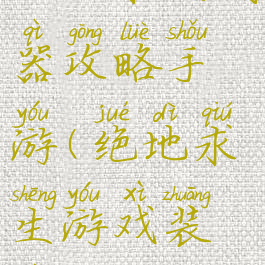 qì gōng lüè shǒu
器攻略手
yóu jué dì qiú
游(绝地求
shēng yóu xì zhuāng
生游戏装